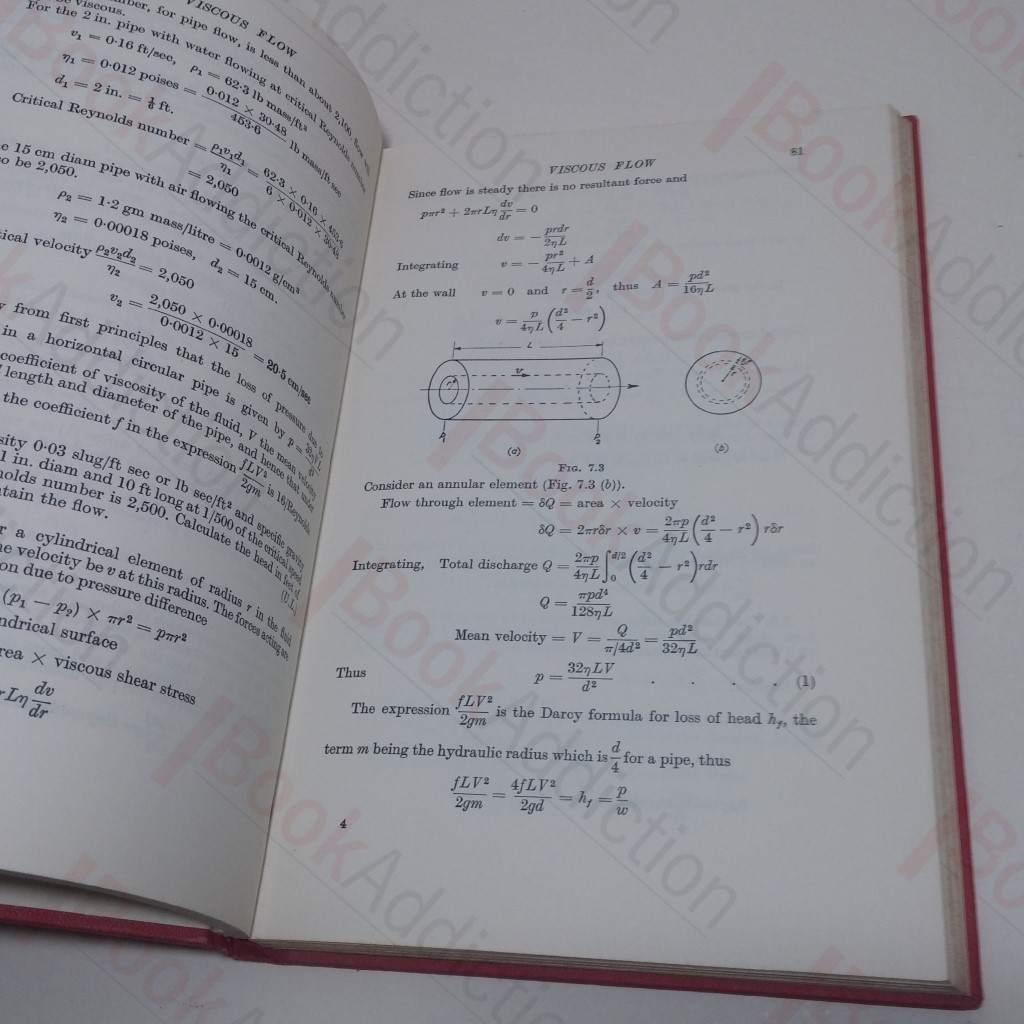 VISCOUS FLOW
be viscous.
for pipe flow, is less than about 2,100, flow will
For the 2 in. pipe with water flowing at critical Reynolds number
v₁ = 0·16 ft/sec, ρ₁ = 62·3 lb mass/ft³
η₁ = 0·012 poises = 0·012 × 30·48 / 453·6 lb mass/ft sec
d₁ = 2 in. = 1/6 ft.
Critical Reynolds number = ρ₁v₁d₁/η₁ = 62·3 × 0·16 × 453·6 / 6 × 0·012 × 30·48
= 2,050
15 cm diam pipe with air flowing the critical Reynolds number
o be 2,050.
ρ₂ = 1·2 gm mass/litre = 0·0012 g/cm³
η₂ = 0·00018 poises, d₂ = 15 cm.
ical velocity ρ₂v₂d₂/η₂ = 2,050
v₂ = 2,050 × 0·00018 / 0·0012 × 15 = 20·5 cm/sec
from first principles that the loss of pressure due to
in a horizontal circular pipe is given by p = 32ηVL/d²
coefficient of viscosity of the fluid, V the mean velocity
length and diameter of the pipe, and hence that under
the coefficient f in the expression fLV²/2gm is 16/Reynolds
sity 0·03 slug/ft sec or lb sec/ft² and specific gravity
1 in. diam and 10 ft long at 1/500 of the critical speed
nolds number is 2,500. Calculate the head in feet of
tain the flow. (U.L.)
r a cylindrical element of radius r in the fluid
e velocity be v at this radius. The forces acting are
on due to pressure difference
(p₁ − p₂) × πr² = pπr²
ndrical surface
rea × viscous shear stress
rLη dv/dr
VISCOUS FLOW 81
Since flow is steady there is no resultant force and
pπr² + 2πrLη dv/dr = 0
dv = − prdr/2ηL
Integrating v = − pr²/4ηL + A
At the wall v = 0 and r = d/2, thus A = pd²/16ηL
v = p/4ηL (d²/4 − r²)
L
v
r
P₁
P₂
(a)
(b)
FIG. 7.3
Consider an annular element (Fig. 7.3 (b)).
Flow through element = δQ = area × velocity
δQ = 2πrδr × v = 2πp/4ηL (d²/4 − r²) rδr
Integrating, Total discharge Q = 2πp/4ηL ∫₀^d/2 (d²/4 − r²) rdr
Q = πpd⁴/128ηL
Mean velocity = V = Q/π/4d² = pd²/32ηL
Thus p = 32ηLV/d² . . . . (1)
The expression fLV²/2gm is the Darcy formula for loss of head h_f, the
term m being the hydraulic radius which is d/4 for a pipe, thus
fLV²/2gm = 4fLV²/2gd = h_f = p/w
4
BookAddiction